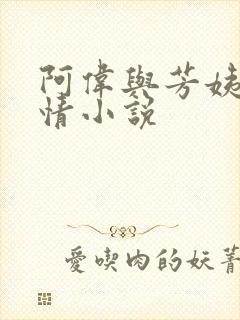 阿偉與芳姨
情小説
愛喫肉的妖菁